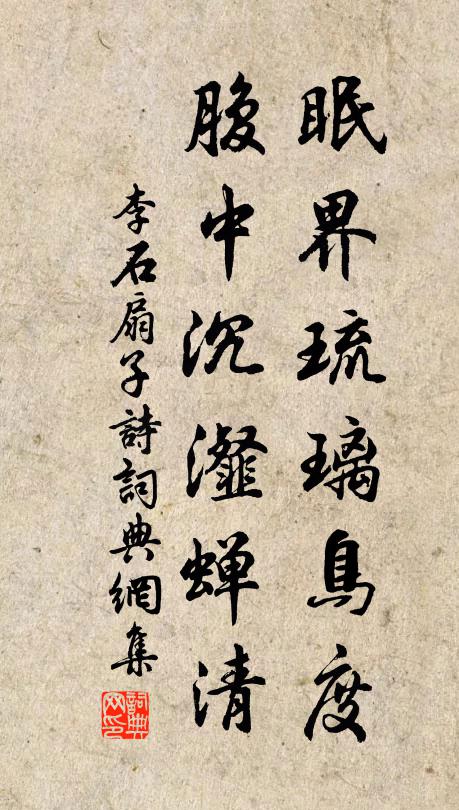 眠界琉璃鳥度
腹中沉瀣蟬清
李石扇子詩詞典網集
詞典網印